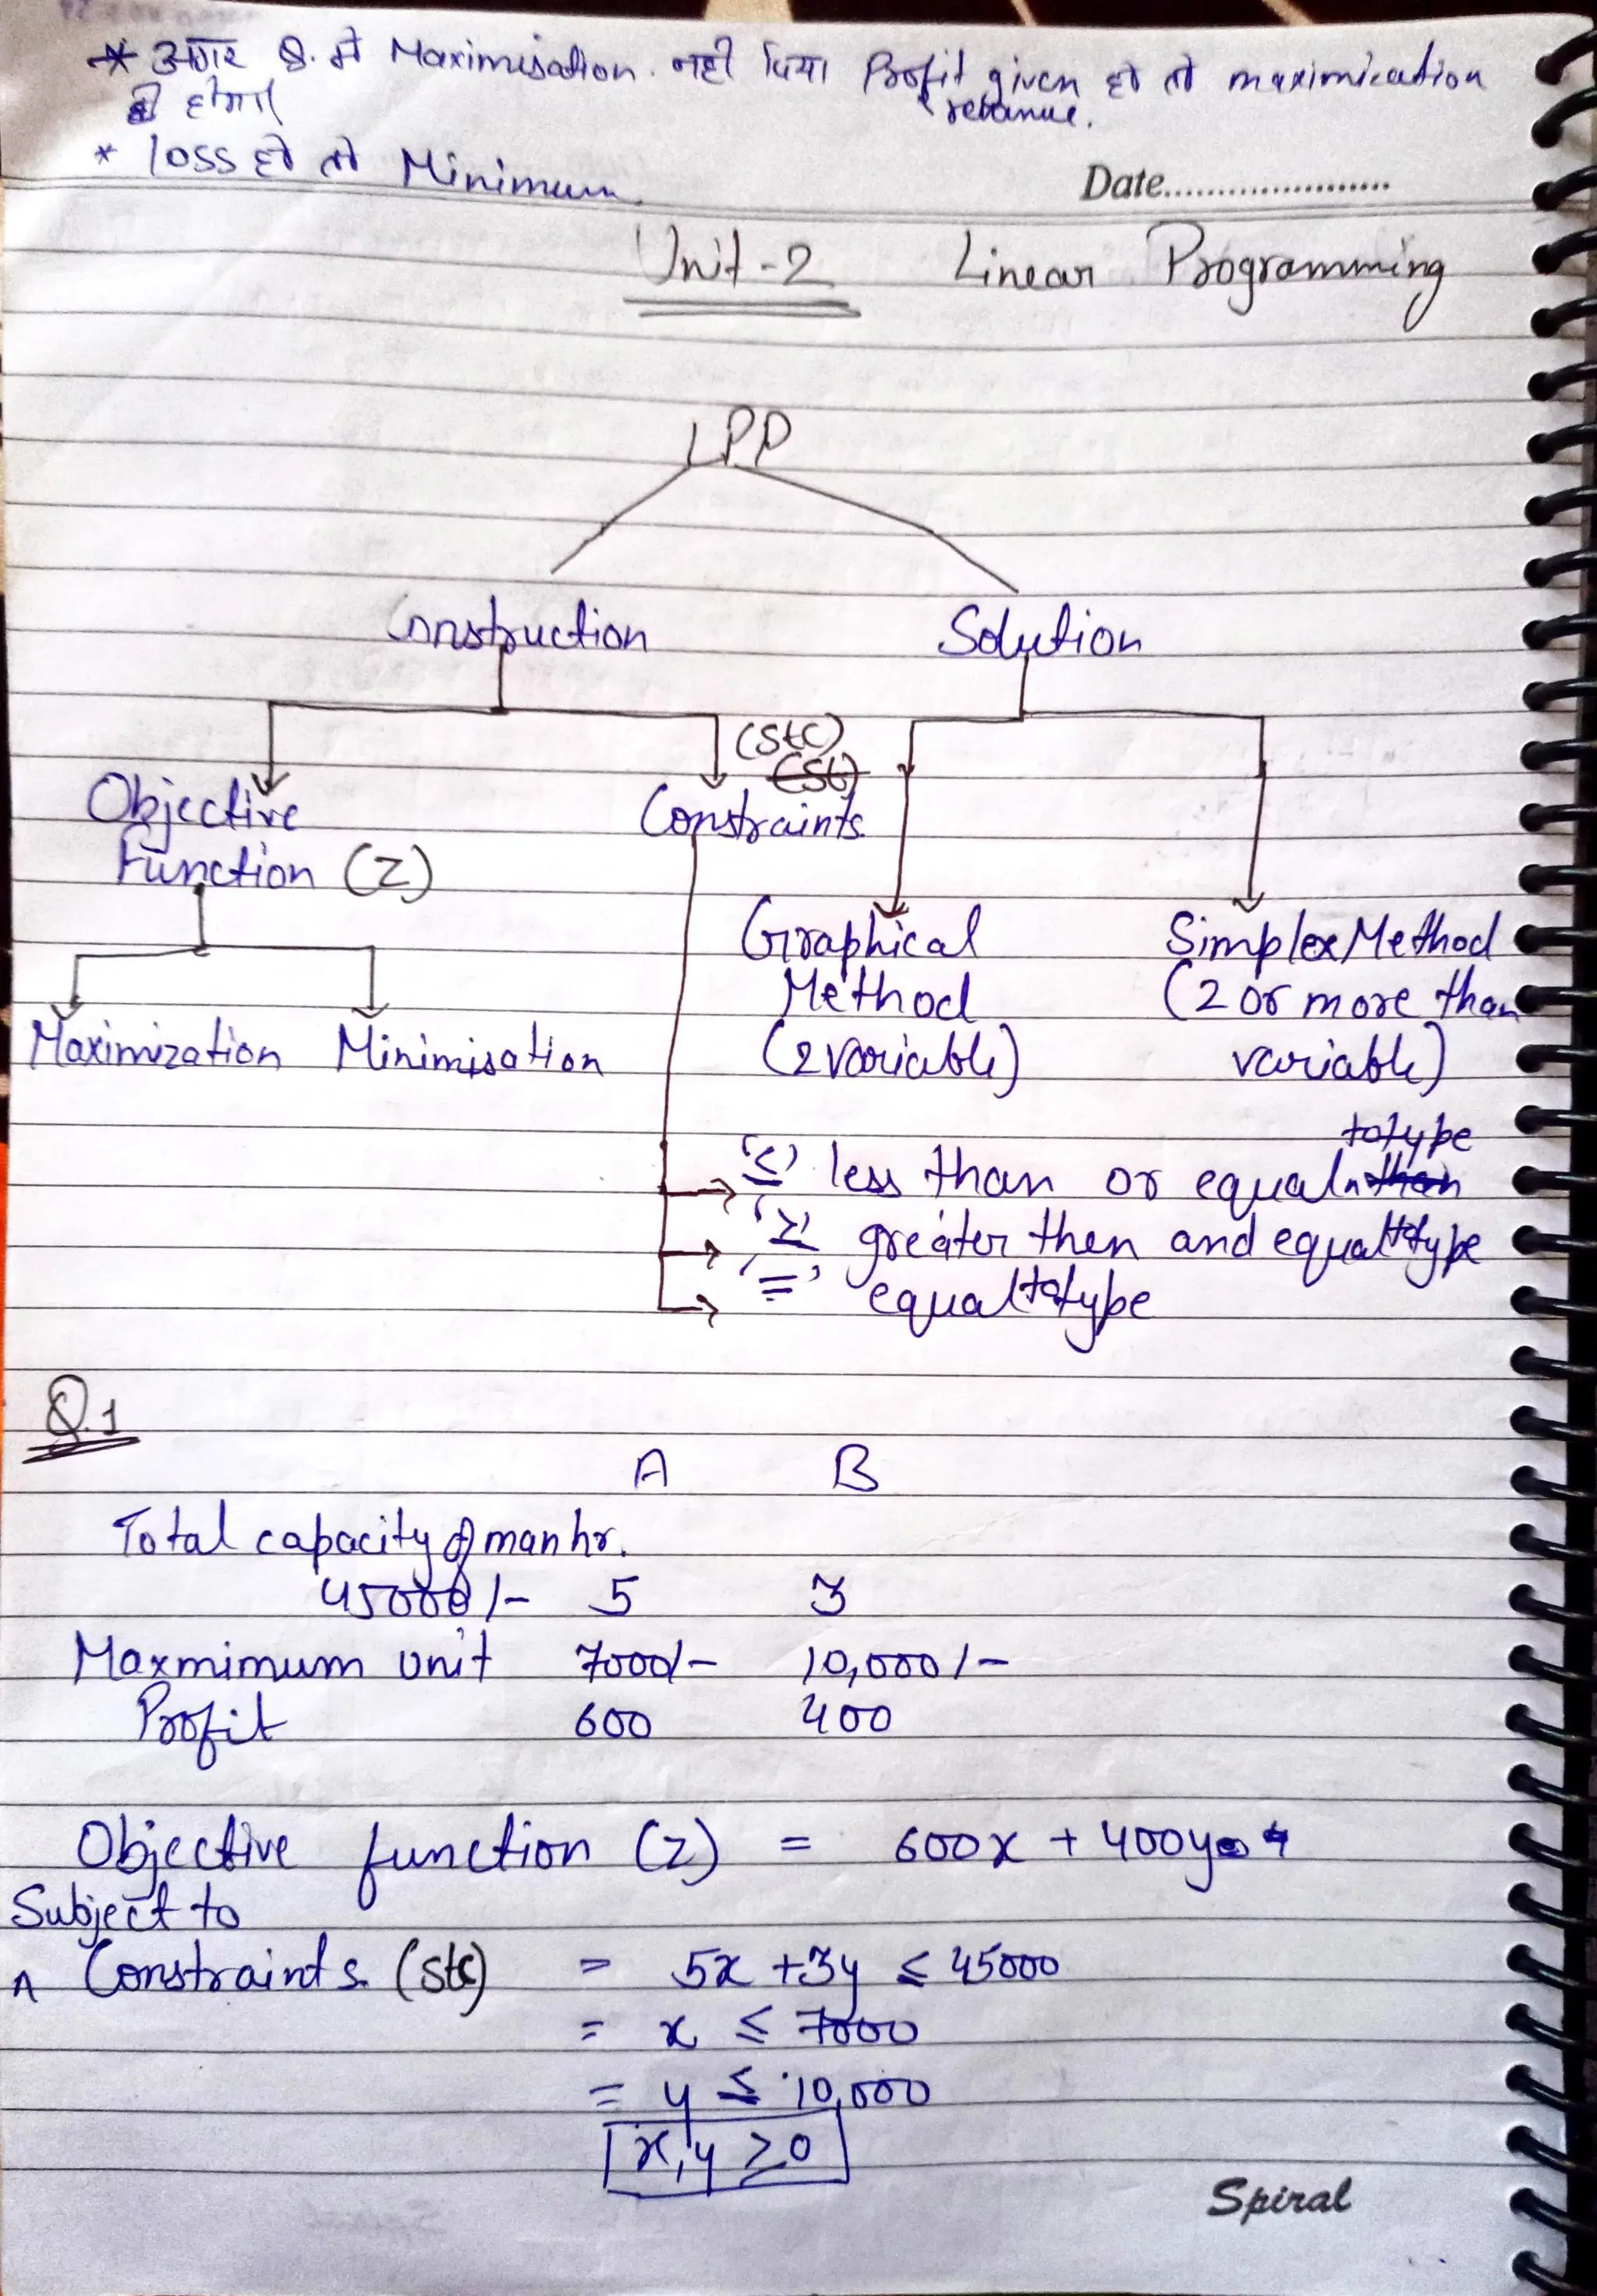 * अगर Q. मे Maximisation नही दिया Profit given हो तो maximication
revanue.
ही होगा
* loss हो तो Minimum
Date.....................
Unit-2 Linear Programming
LPP
Construction Solution
(Stc)
(St)
Objective Constraints
Function (Z)
Graphical Simplex Method
Method (2 or more than
Maximization Minimisation (2 variable) variable)
totype
'≤' less than or equal than
'≥' greater then and equaltotype
'=' equaltotype
Q.1
A B
Total capacity of man hr.
45000/- 5 3
Maxmimum unit 7000/- 10,000/-
Profit 600 400
Objective function (z) = 600x + 400y
Subject to
Constraints (Stc) = 5x + 3y ≤ 45000
= x ≤ 7000
= y ≤ 10,000
x, y ≥ 0
Spiral